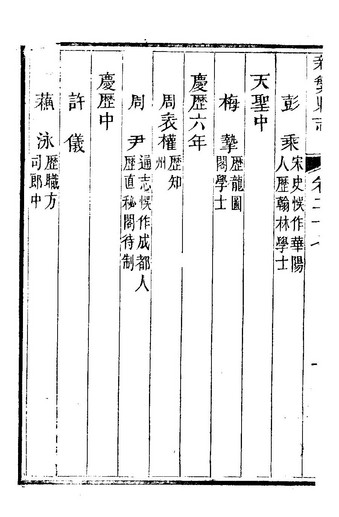 新繁縣志
卷二十七
彭乘宋史悞作華陽
人歷翰林學士
天聖中
梅摯歷龍圖
閣學士
慶歷六年
周表權歷知
州
周尹通志悞作成都人
歷直秘閣待制
慶歷中
許儀
蘓泳歷職方
司郎中